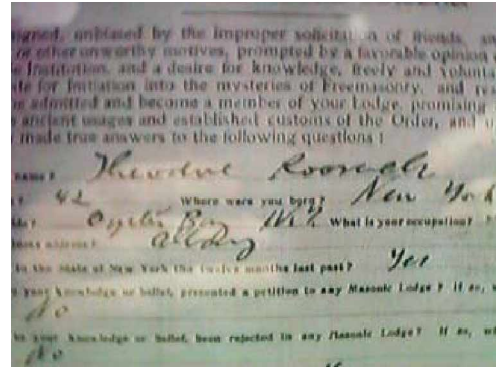 signed, unbiased by the improper solicitation of friends, an
or other unworthy motives, prompted by a favorable opinion
he Institution, and a desire for knowledge, freely and volunta
ate for Initiation into the mysteries of Freemasonry, and res
be admitted and become a member of your Lodge, promising
e ancient usages and established customs of the Order, and
made true answers to the following questions:
name? Theodore Roosevelt
42 Where were you born? New York
Oyster Bay N.Y. What is your occupation?
address? Albany
in the State of New York the twelve months last past? Yes
your knowledge or belief, presented a petition to any Masonic Lodge? If so, w
No
to your knowledge or belief, been rejected in any Masonic Lodge? If so, wh
No